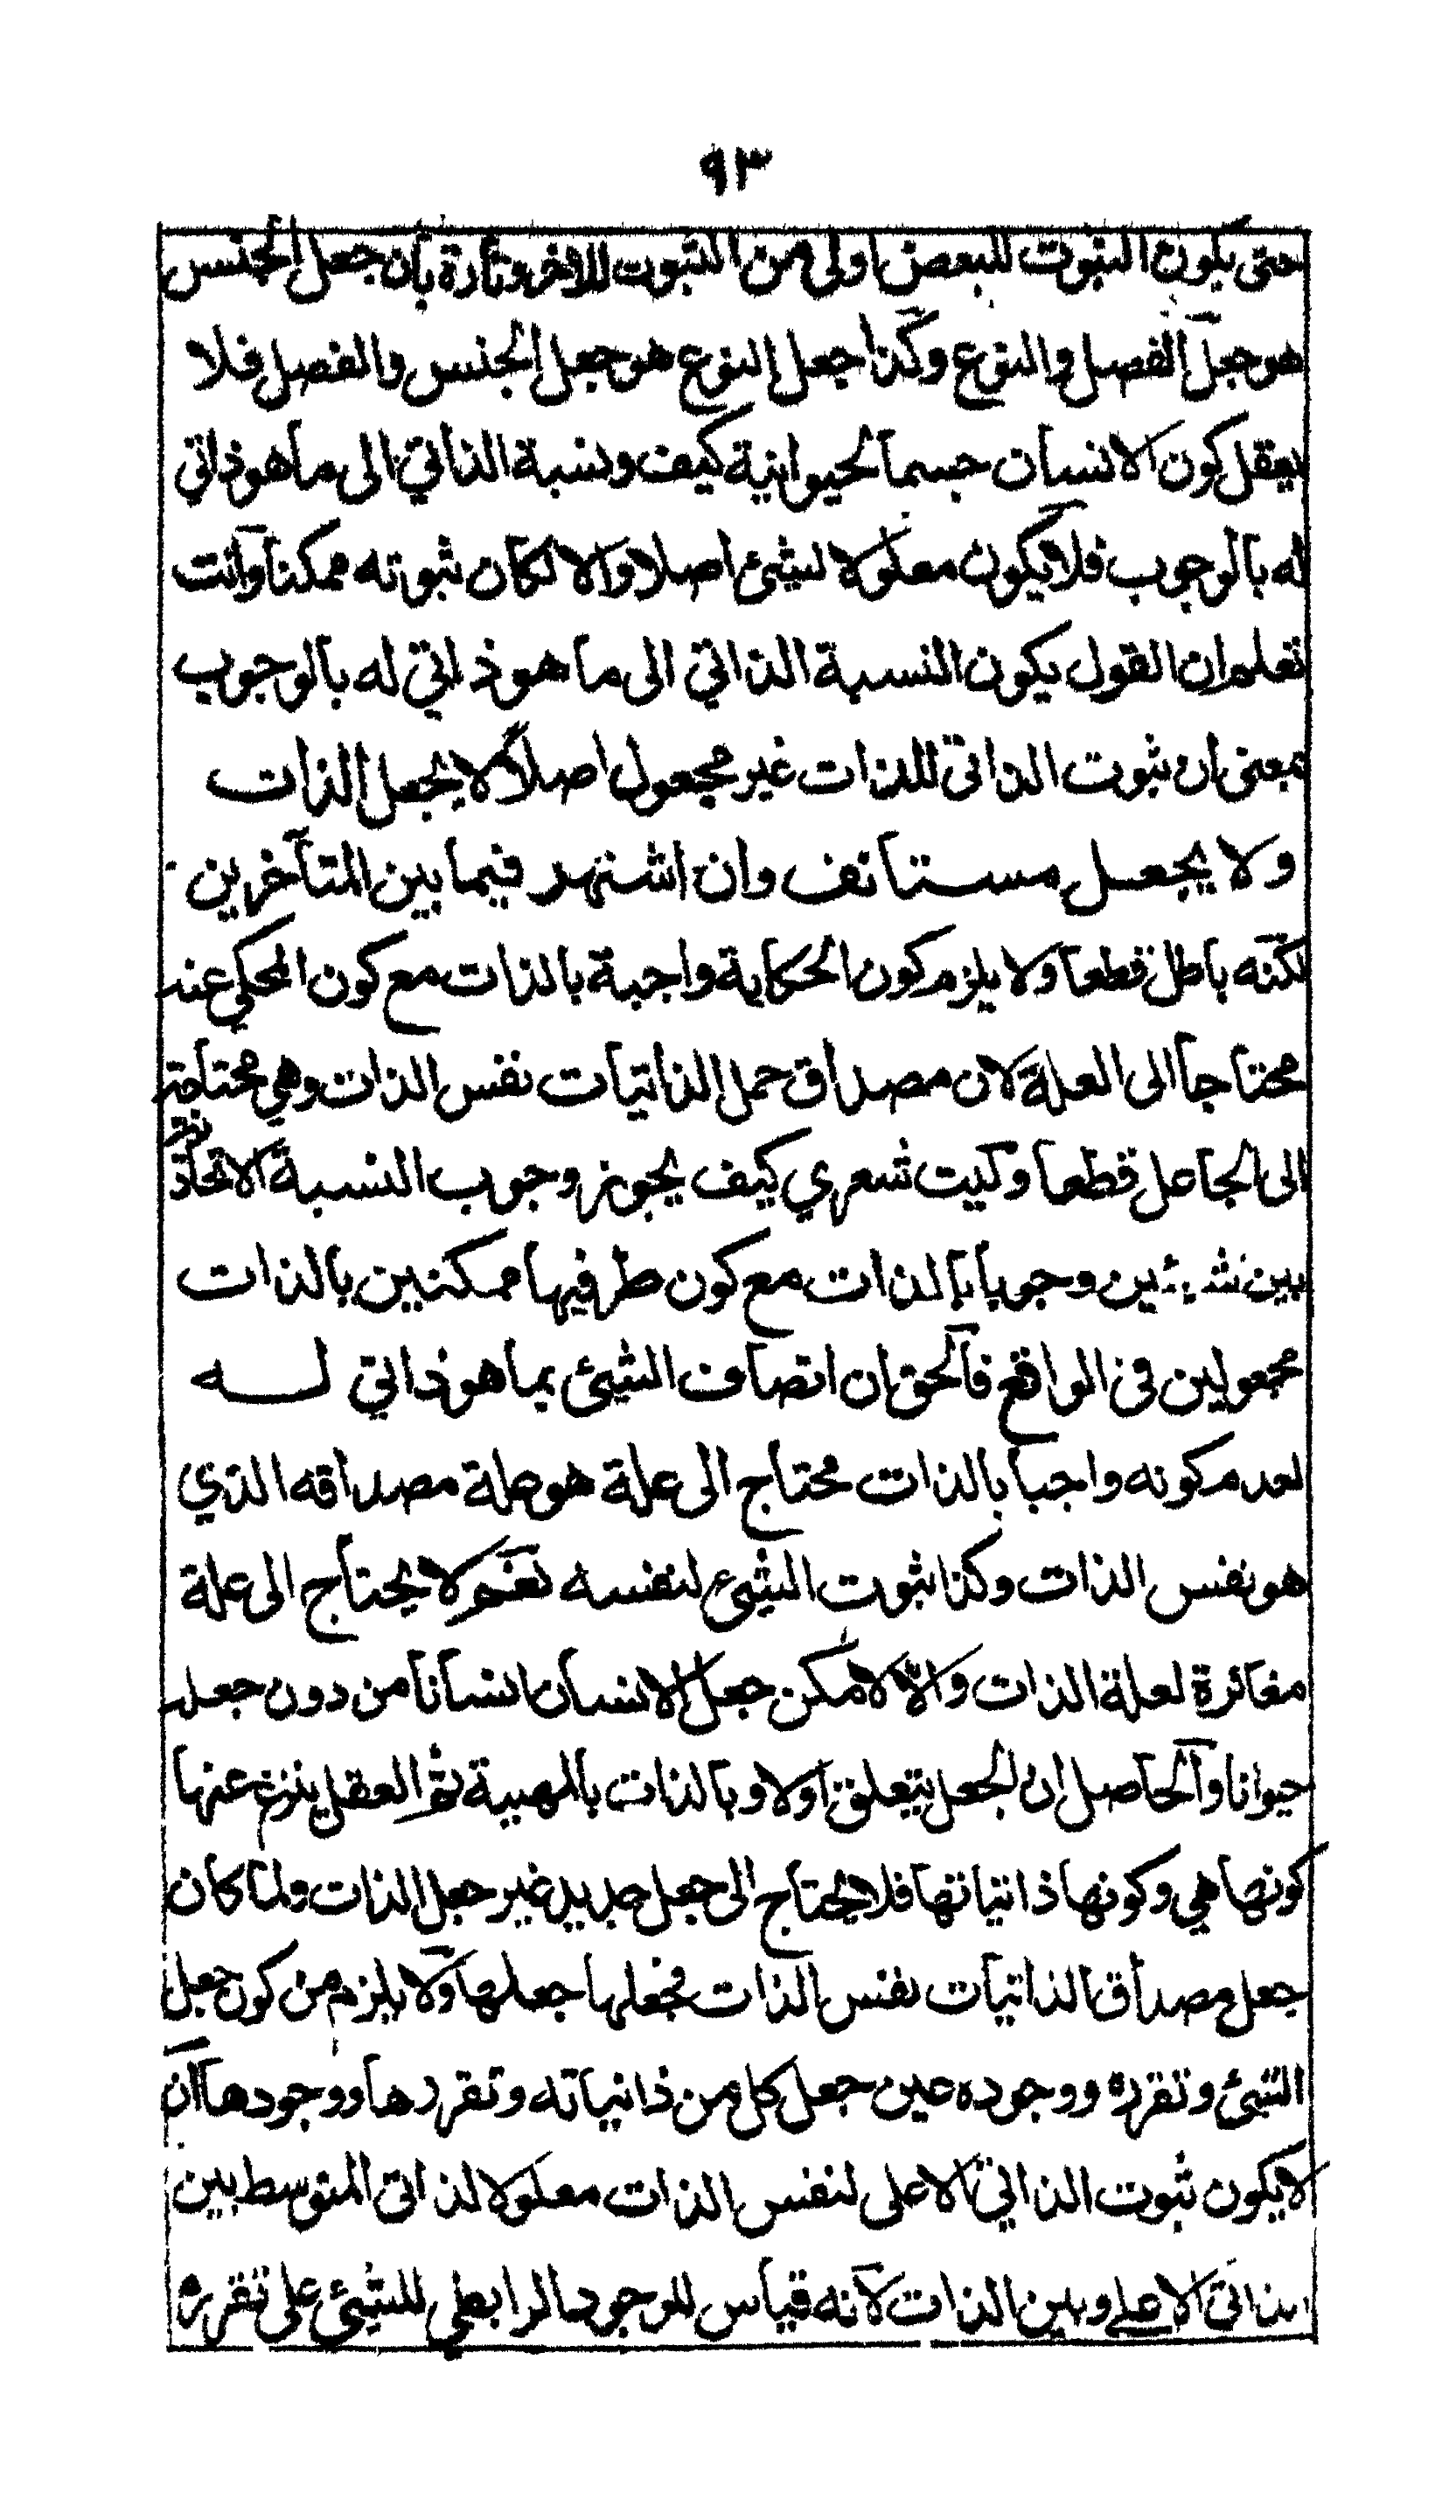 ٩٣
حتى يكون الثبوت للبعض اولى من الثبوت للاخر وتارة بان جعل الجنس
هو جعل الفصل والنوع وكذا جعل النوع هو جعل الجنس والفصل فلا
يعقل كون الانسان جسما لحيوانية كيف ونسبة الذاتي الى ما هو ذاتي
له بالوجوب فلا يكون معلولا لشيئ اصلا والا لكان ثبوته ممكنا وانت
تعلم ان القول بكون النسبة الذاتي الى ما هو ذاتي له بالوجوب
بمعنى ان ثبوت الذاتي للذات غير مجعول اصلا لا بجعل الذات
ولا بجعل مستانف وان اشتهر فيما بين المتأخرين
لكنه باطل قطعا ولا يلزم كون الحكاية واجبة بالذات مع كون المحكي عنه
محتاجا الى العلة لان مصداق حمل الذاتيات نفس الذات وهي محتاجة
الى الجاعل قطعا وليت شعري كيف يجوز وجوب النسبة الاتحادية
بين شيئين وجوبا بالذات مع كون طرفيها ممكنين بالذات
مجعولين في الواقع فالحق ان اتصاف الشيئ بما هو ذاتي له
لعدم كونه واجبا بالذات محتاج الى علة هو علة مصداقه الذي
هو نفس الذات وكذا ثبوت الشيئ لنفسه نعم لا يحتاج الى علة
مغائرة لعلة الذات والا لامكن جعل الانسان انسانا من دون جعله
حيوانا والحاصل ان الجعل يتعلق اولا وبالذات بالمهية ثم العقل ينزع عنها
كونها هي وكونها ذاتياتها فلا يحتاج الى جعل جديد غير جعل الذات ولما كان
جعل مصداق الذاتيات نفس الذات فجعلها جعلها ولا يلزم من كون جعل
الشيئ وتقرره ووجوده عين جعل كل من ذاتياته وتقررها ووجودها ان
لا يكون ثبوت الذاتي الاعلى لنفس الذات معلولا لذاتي المتوسط بين
الذاتي الاعلى وبين الذات لانه قياس للوجود الرابطي للشيئ على تقرره